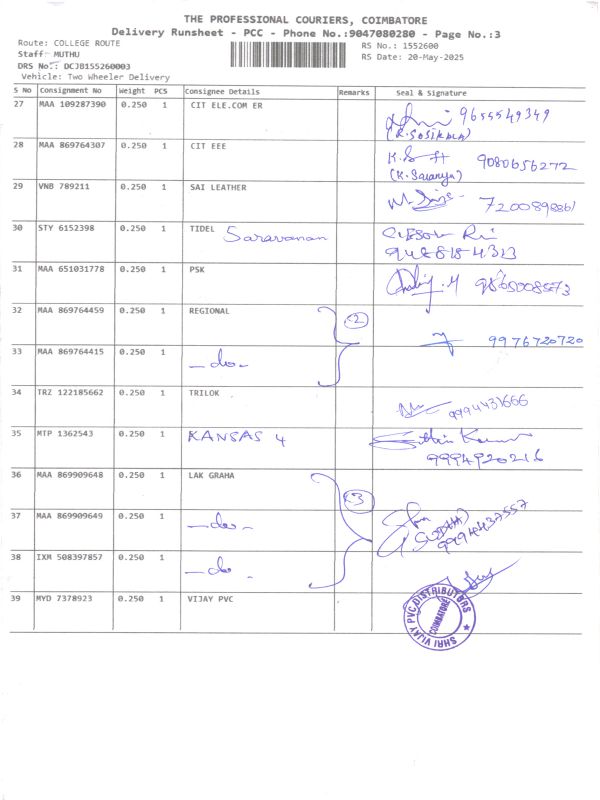 THE PROFESSIONAL COURIERS, COIMBATORE
Delivery Runsheet - PCC - Phone No.:9047080280 - Page No.:3
Route: COLLEGE ROUTE
RS No.: 1552600
Staff: MUTHU
RS Date: 20-May-2025
DRS No.: DCJB155260003
Vehicle: Two Wheeler Delivery
S No Consignment No Weight PCS Consignee Details Remarks Seal & Signature
27 MAA 109287390 0.250 1 CIT ELE.COM ER 9655549349
(R.SASIKALA)
28 MAA 869764307 0.250 1 CIT EEE 9080656272
(K. Saranya)
29 VNB 789211 0.250 1 SAI LEATHER 7200898861
30 STY 6152398 0.250 1 TIDEL Saravanan
31 MAA 651031778 0.250 1 PSK 9865008573
32 MAA 869764459 0.250 1 REGIONAL 2 9976720720
33 MAA 869764415 0.250 1 -do-
34 TRZ 122185662 0.250 1 TRILOK 9994431666
35 MTP 1362543 0.250 1 KANSAS 4
9994920216
36 MAA 869909648 0.250 1 LAK GRAHA 3
37 MAA 869909649 0.250 1 -do- 9994437557
38 IXM 508397857 0.250 1 -do-
39 MYD 7378923 0.250 1 VIJAY PVC
SHRI VIJAY PVC DISTRIBUTORS
COIMBATORE